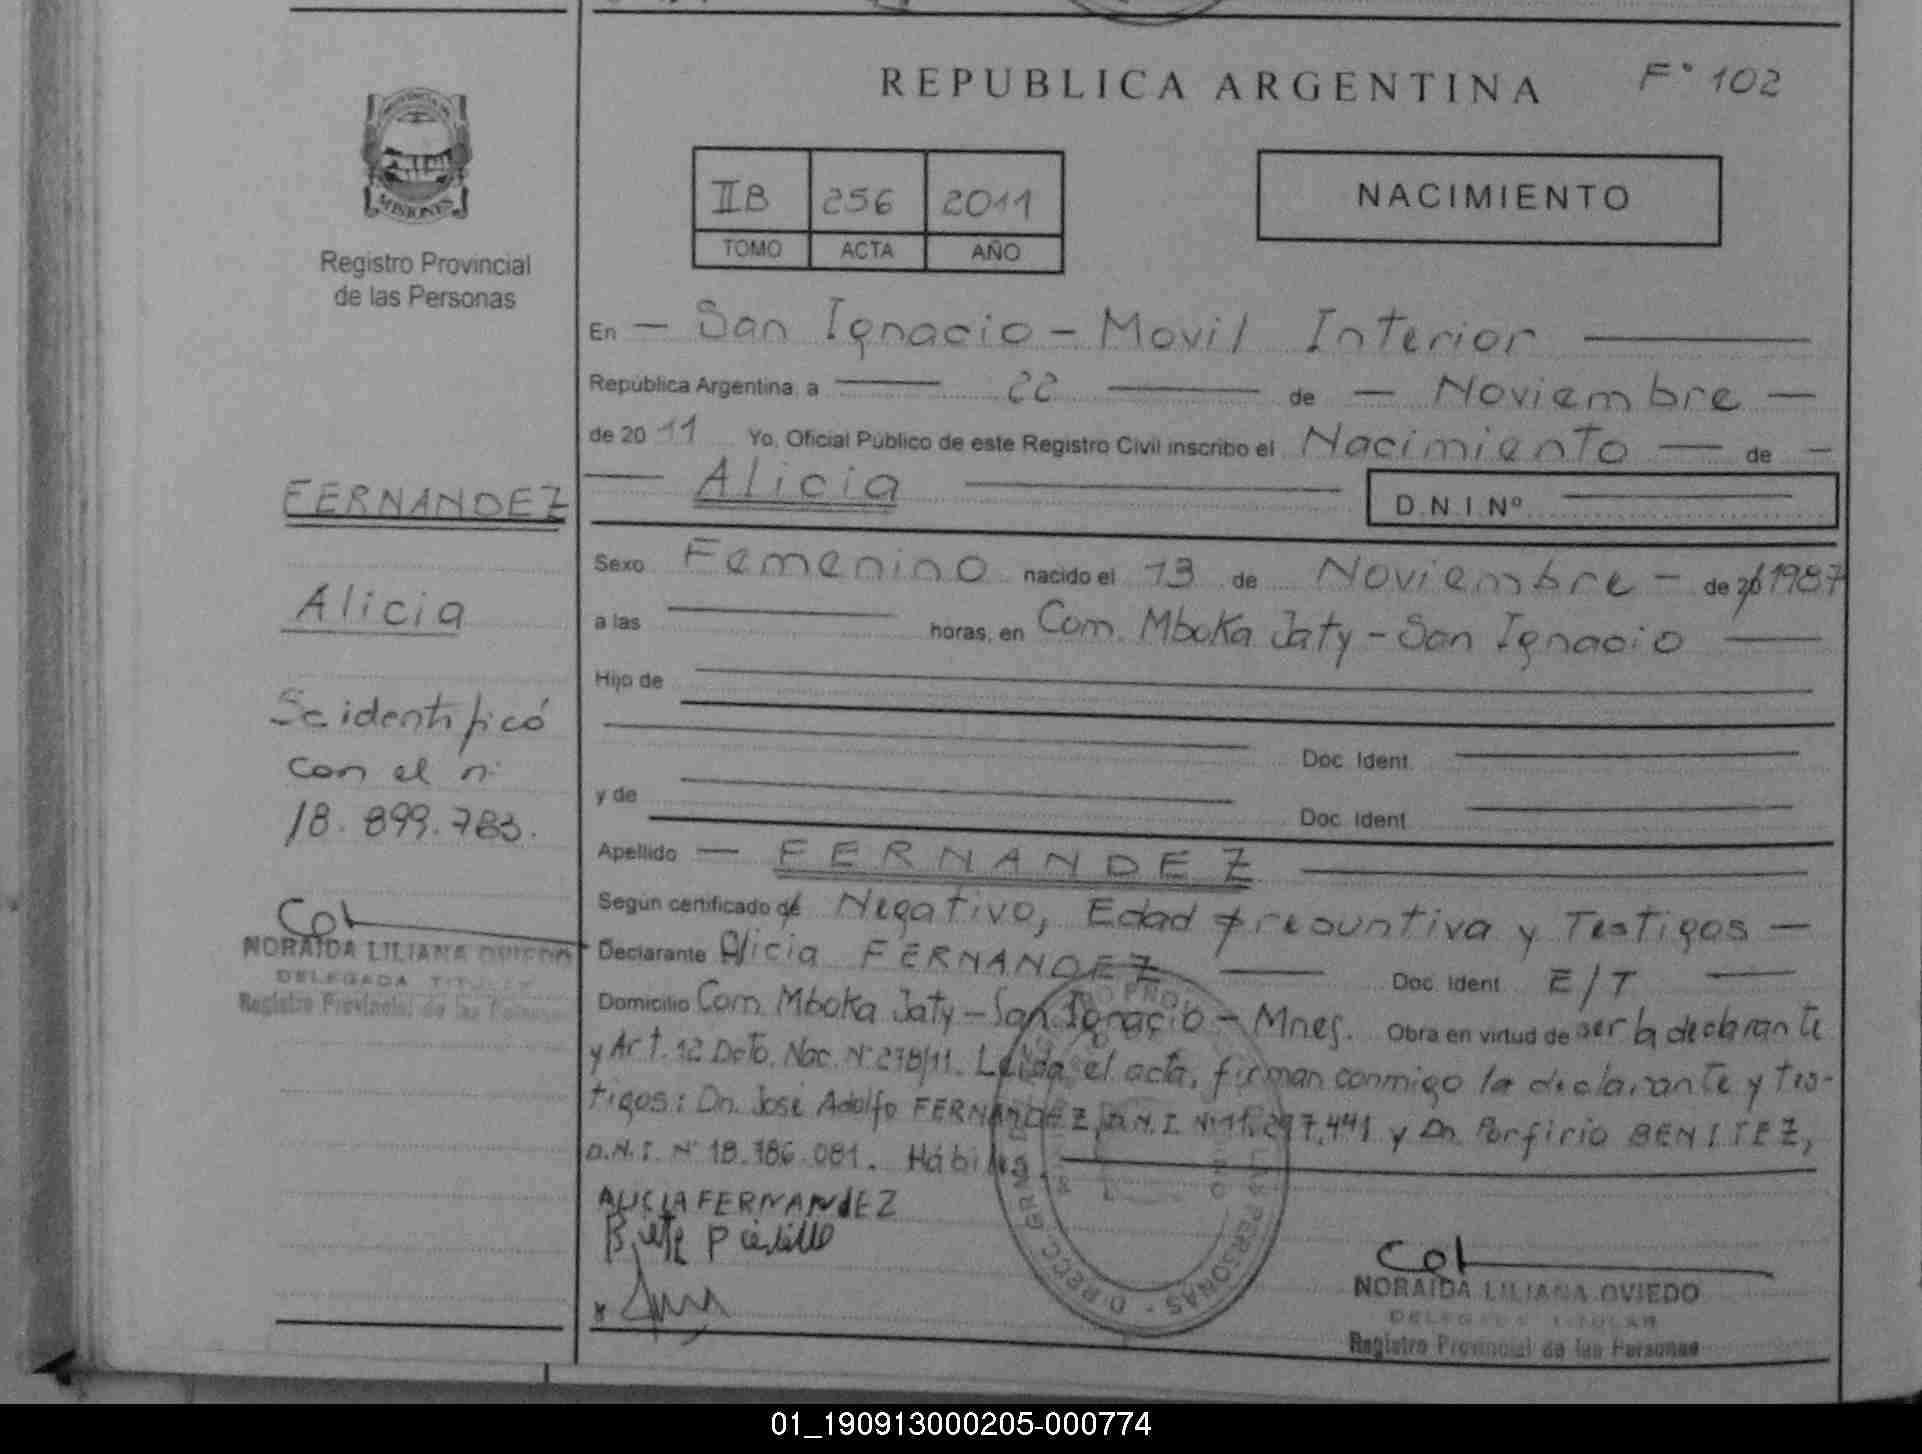 REPUBLICA ARGENTINA F° 102
PROVINCIA DE
MISIONES
Registro Provincial
de las Personas
IIB 256 2011
TOMO ACTA AÑO
NACIMIENTO
En — San Ignacio - Movil Interior
República Argentina, a 22 de — Noviembre —
de 2011 Yo, Oficial Público de este Registro Civil inscribo el Nacimiento — de —
Alicia D.N.I.Nº
Sexo Femenino nacido el 13 de Noviembre - de 20 1987
a las horas, en Com. Mboka Jaty - San Ignacio
Hijo de
Doc. Ident.
y de
Doc. Ident.
Apellido — FERNANDEZ
Según certificado de Negativo, Edad presuntiva y Testigos —
Declarante Alicia FERNANDEZ Doc. Ident. E/T
Domicilio Com. Mboka Jaty - San Ignacio - Mnes. Obra en virtud de ser la declarante
y Art. 12 Dcto. Nac. N° 278/11. Leida el acta, firman conmigo la declarante y tes-
tigos: Dn. José Adolfo FERNANDEZ, D.N.I. N° 11.297.441 y Dn. Porfirio BENITEZ,
D.N.I. N° 18.786.081. Hábiles.
ALICIA FERNANdEZ
NORAIDA LILIANA OVIEDO
DELEGADA TITULAR
Registro Provincial de las Personas
FERNANDEZ
Alicia
Se identificó
con el n°
18.899.783.
NORAIDA LILIANA OVIEDO
DELEGADA TITULAR
Registro Provincial de las Personas
01_190913000205-000774